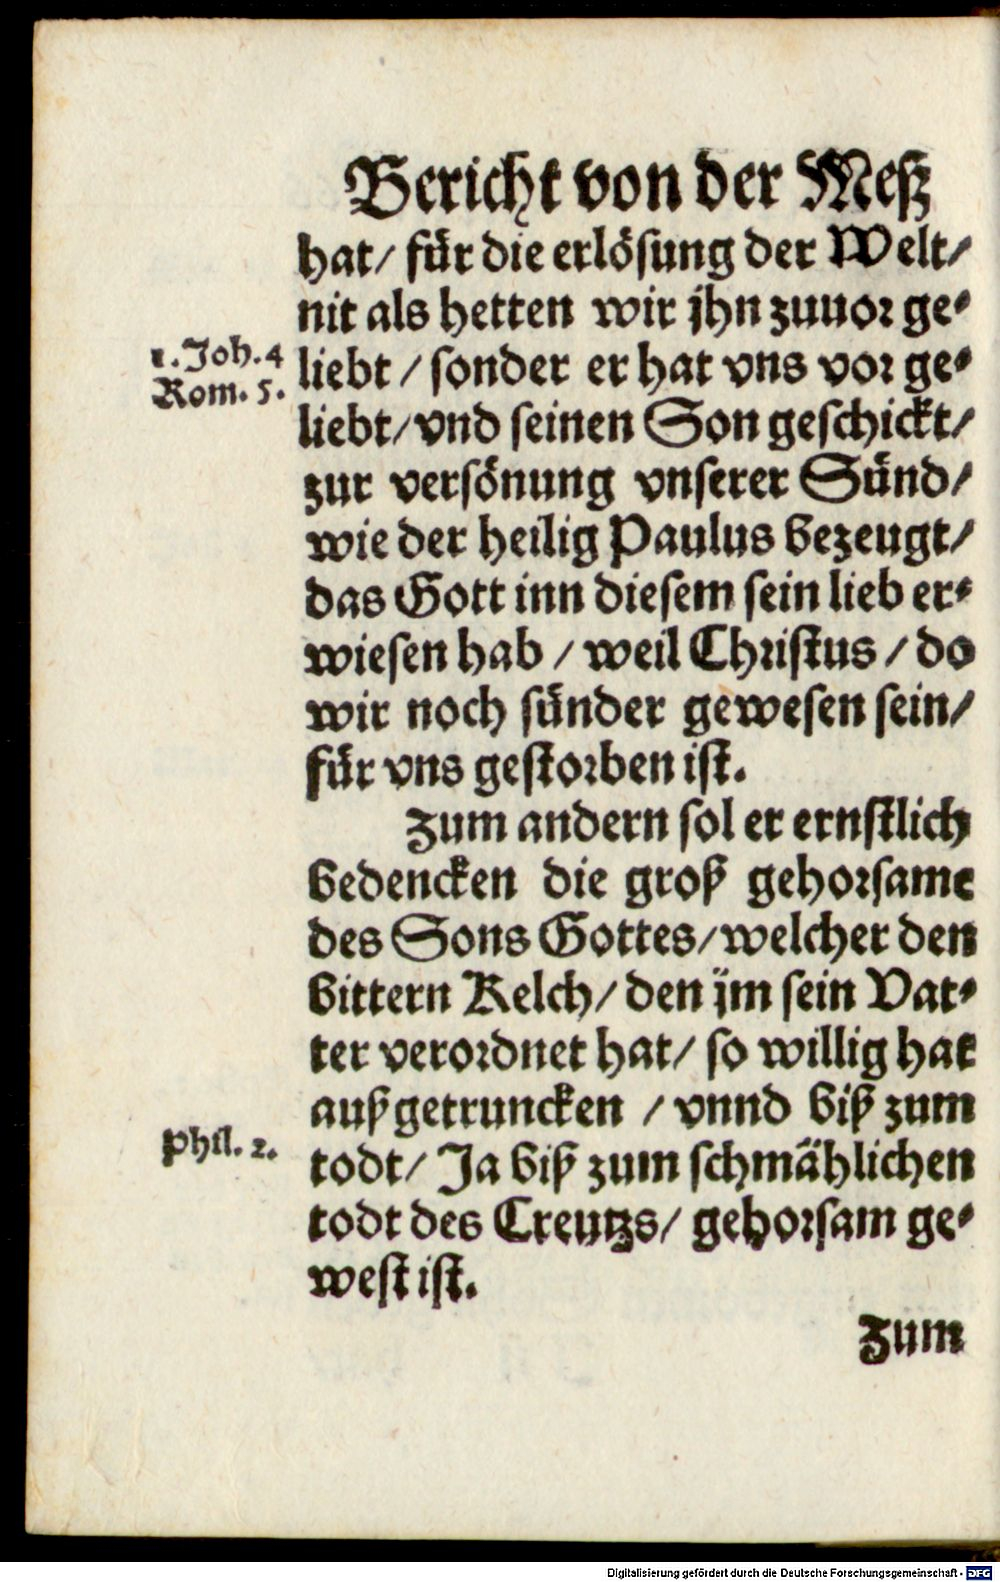 Bericht von der Meß
hat/ für die erlösung der Welt/
nit als hetten wir jhn zuuor ge-
1. Joh. 4
liebt / sonder er hat vns vor ge-
Rom. 5.
liebt/ vnd seinen Son geschickt/
zur versönung vnserer Sünd/
wie der heilig Paulus bezeugt/
das Gott inn diesem sein lieb er-
wiesen hab / weil Christus / do
wir noch sünder gewesen sein/
für vns gestorben ist.
Zum andern sol er ernstlich
bedencken die groß gehorsame
des Sons Gottes/ welcher den
bittern Kelch/ den jm sein Vat-
ter verordnet hat/ so willig hat
außgetruncken / vnnd biß zum
Phil. 2.
todt/ Ja biß zum schmählichen
todt des Creutzs/ gehorsam ge-
west ist.
Zum
Digitalisierung gefördert durch die Deutsche Forschungsgemeinschaft - DFG